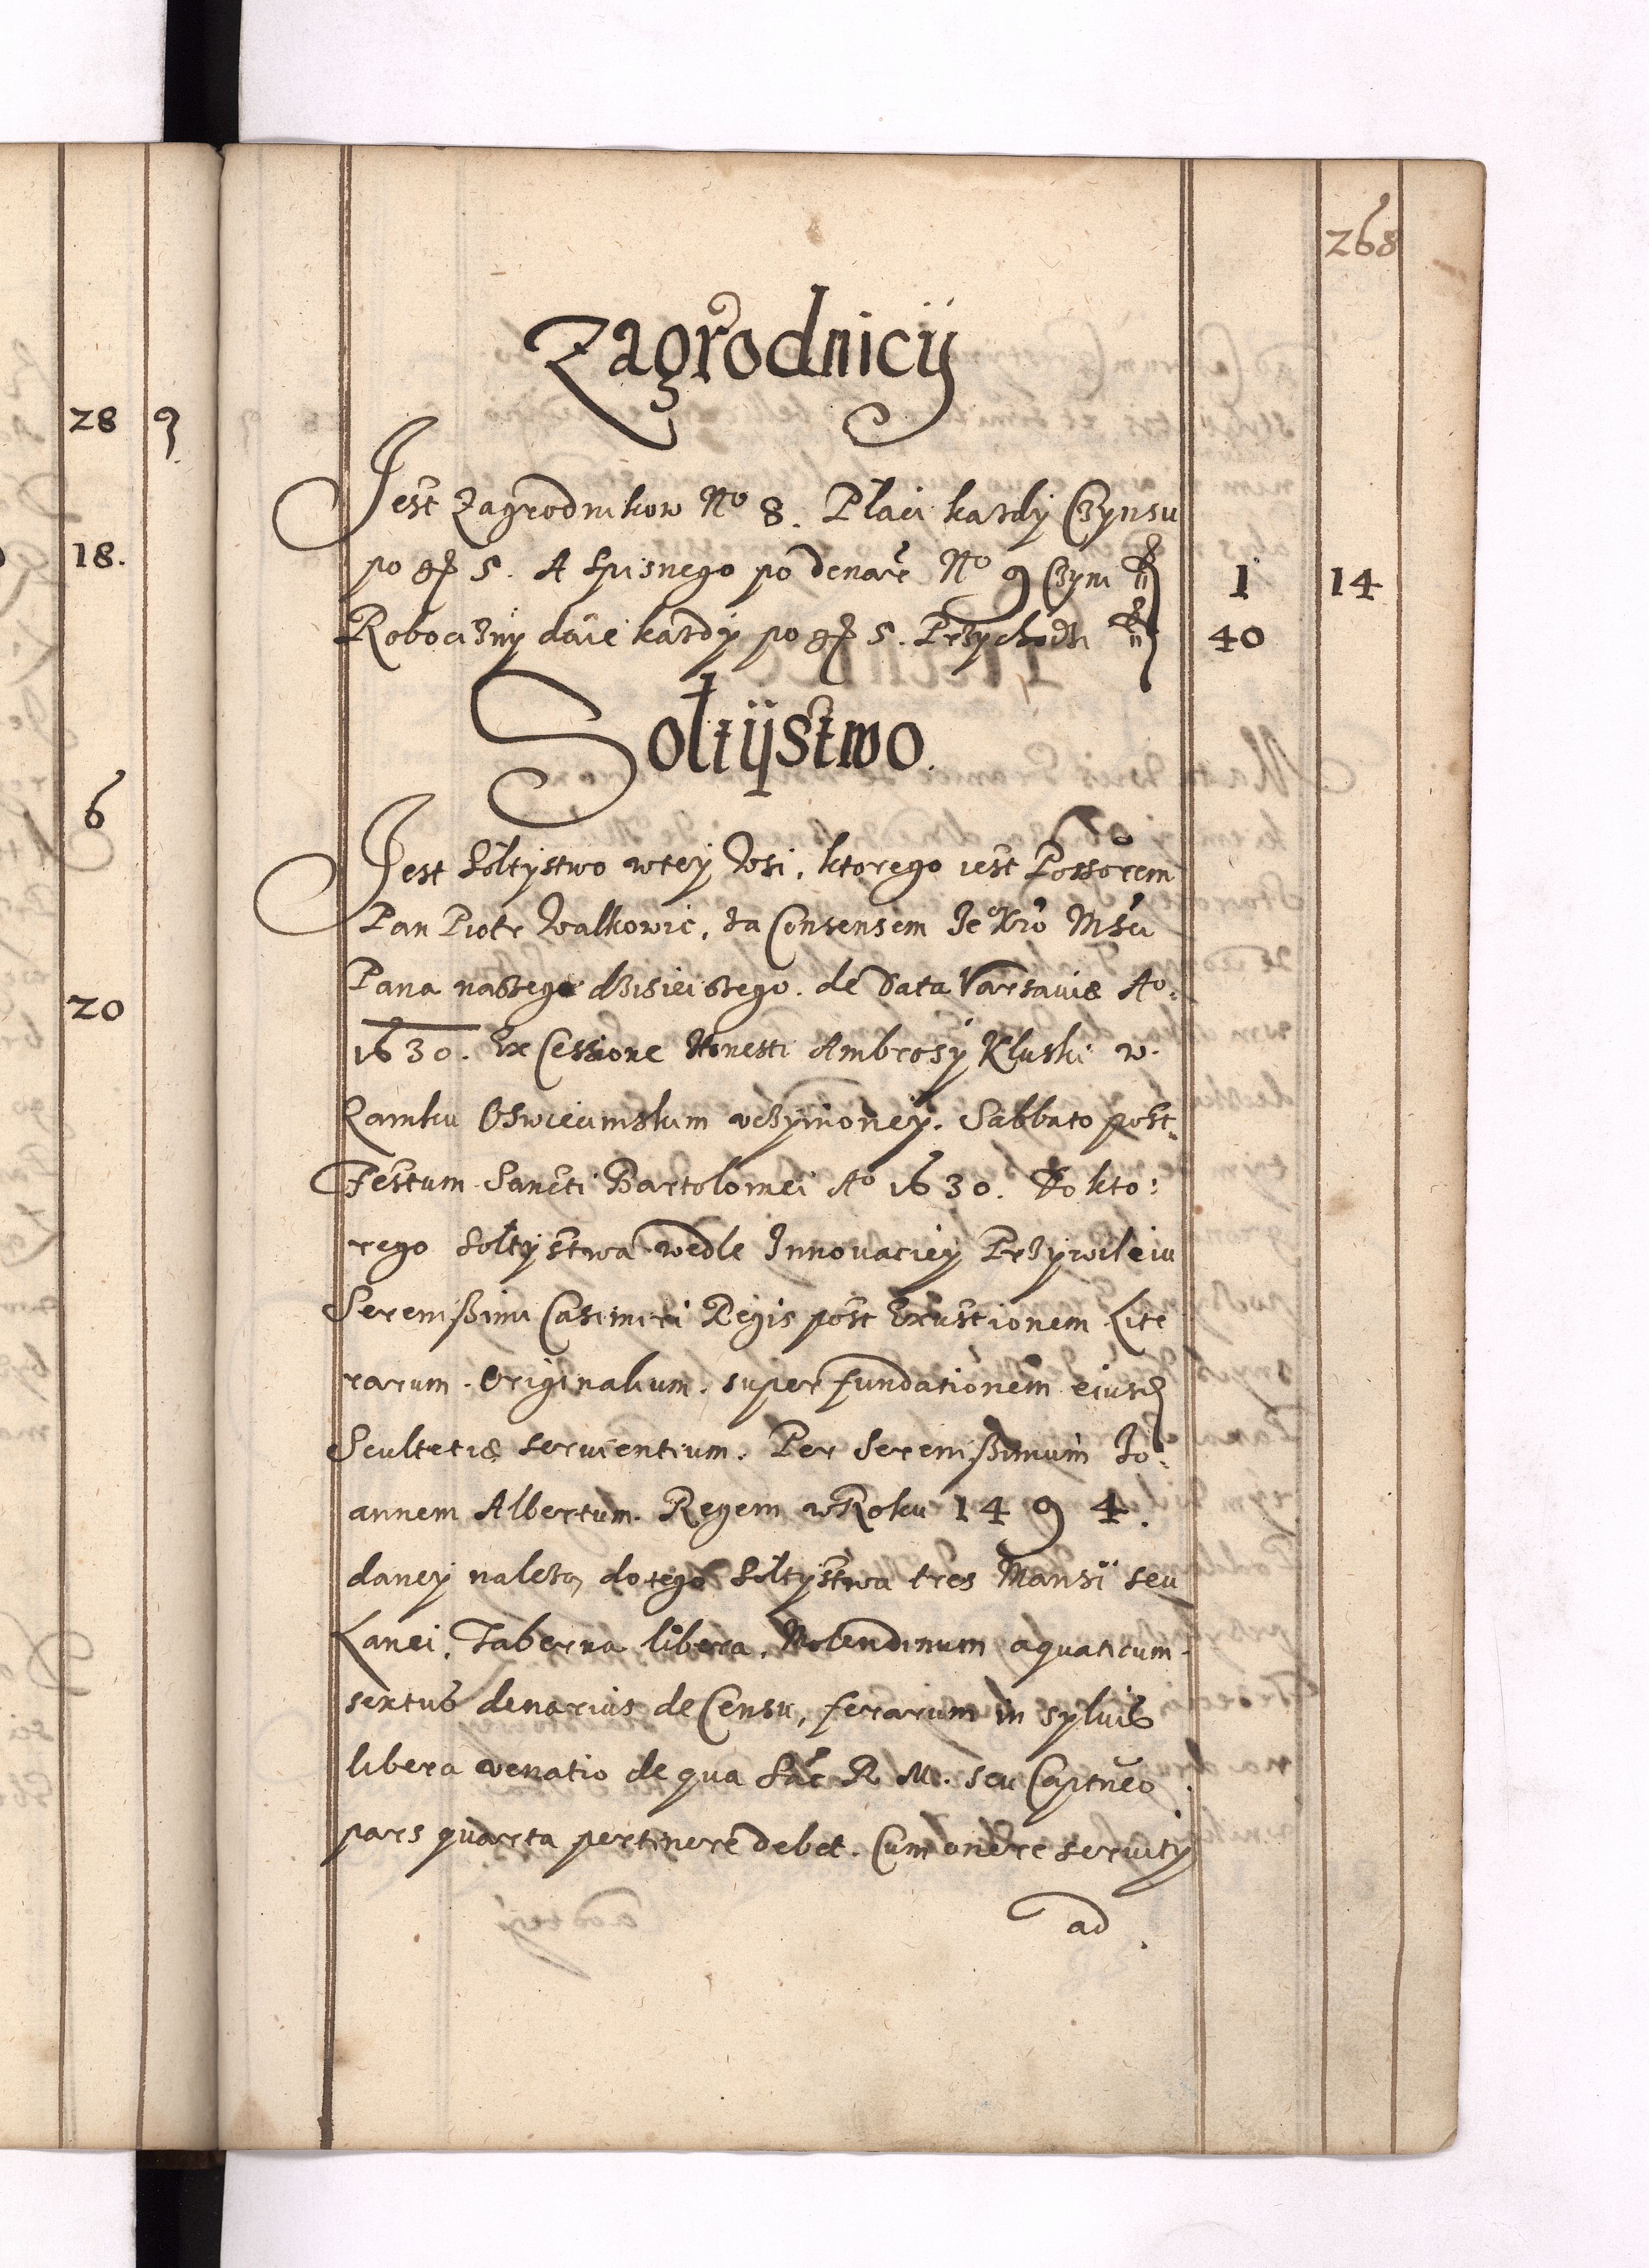 268
28 9
18.
6
20
Zagrodnicÿ
Jest Zagrodnikow No 8. Płaci kazdÿ Czÿnsu
po gr 5. A Spisnego po denare No 9 Czyni 1 14
Robocizny daie kazdÿ po gr 5. Przychodzi 40
Sołtÿstwo.
Jest Sołtystwo wteÿ Wsi, ktorego iest Possorem
Pan Piotr Walkowic, za Consensem Je Kro Msci
Pana naszego dzisieiszego. de Data Varsauiæ Ao.
1630. Ex Cessione Honesti Ambrosÿ Kluski w.
Zamku Oswiecimskim vczÿnioneÿ. Sabbato post
Festum Sancti Bartolomei Ao 1630. Do kto:
rego Sołtÿstwa wedle Innouacieÿ Przÿwileiu
Serenißimi Casimiri Regis post Exustionem Lite
rarum. Originalium. super fundationem eiusd
Scultetiæ seruientium. Per Serenißimum Jo:
annem Albertum. Regem wRoku 1494.
daneÿ nalezą dotego Sołtÿstwa tres Mansi seu
Lanei, Taberna libera, Molendinum aquaticum.
sextus denarius de Censu, ferarum in syluis
libera venatio de qua Sac R M. seu Captneo
pars quarta pertinere debet. Cum onere seruitÿ
ad